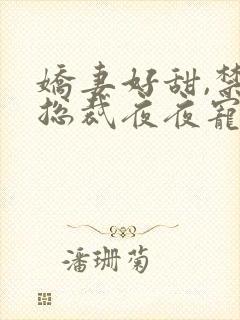 嬌妻好甜,禁
總裁夜夜寵
潘珊菊